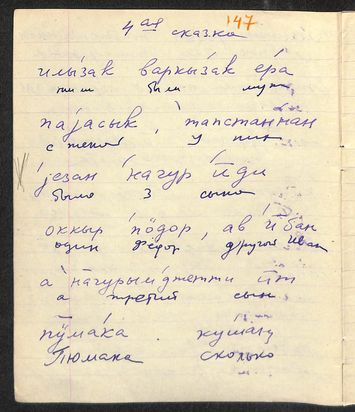 147.
4 ая сказка
илызак варкызак е́ра
жили были муж
паjасык, тапстаннан
с женой у них
jезан на́гур й́ди
было 3 сына
оккыр пӧдор, ав и́бан
один Федор, другой Иван
а нагурымджетти ӣт
а третий сын
пӱма́ка. кушаӈ
Пюмака сколько